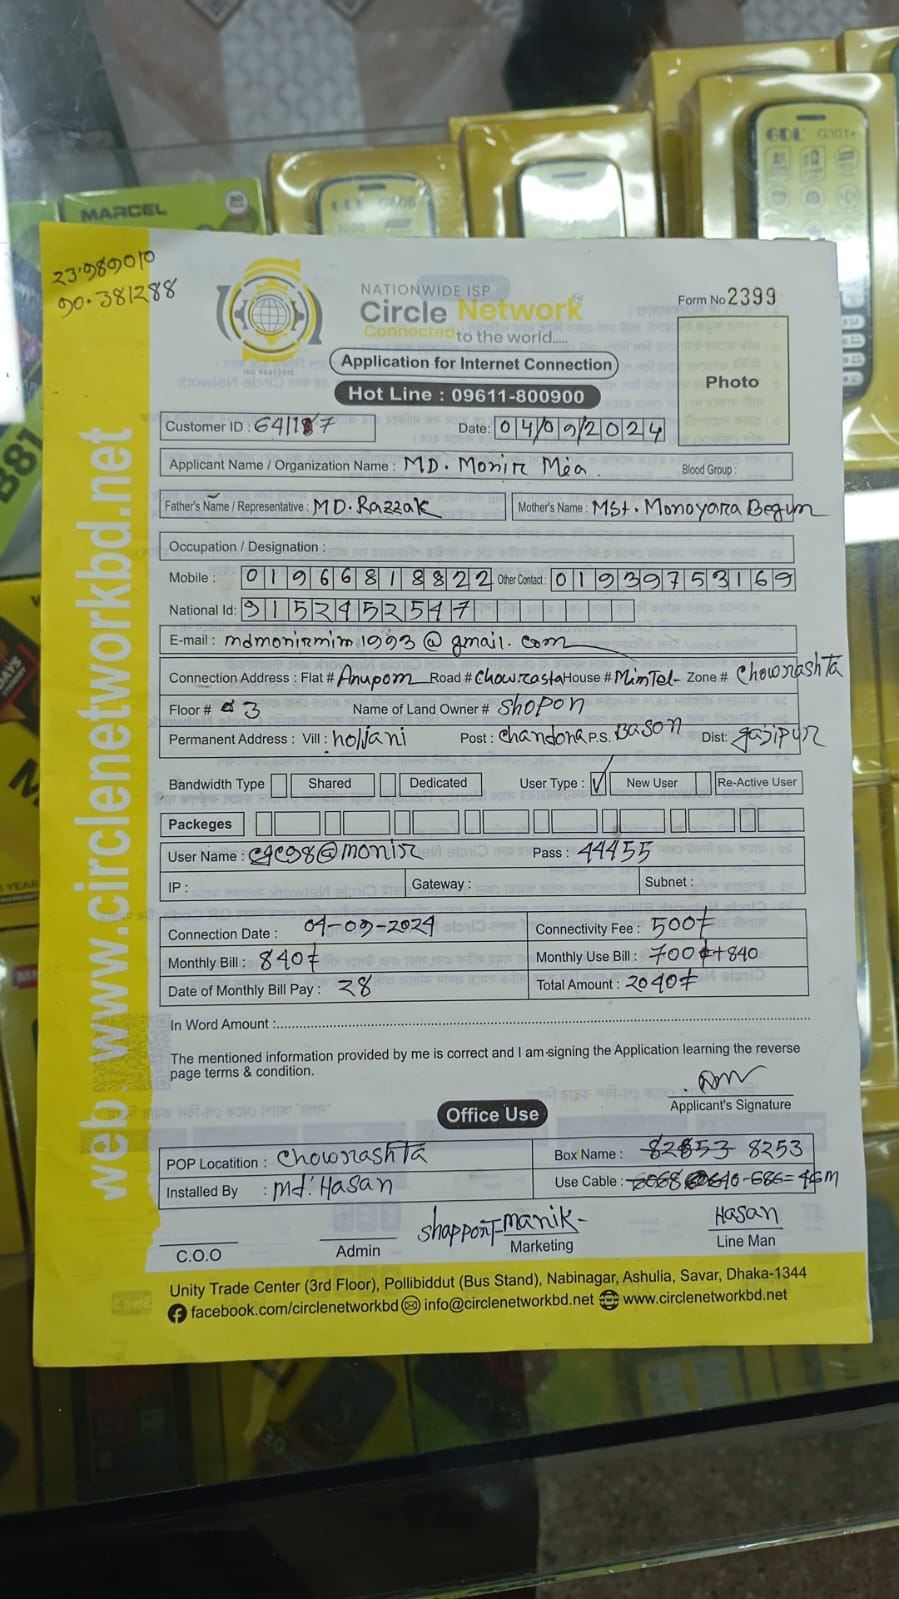 MARCEL
GDL G301+
23.989010
90.381288
NATIONWIDE ISP
Circle Network
Connected to the world.....
ISO 9001:2015
Form No 2399
Application for Internet Connection
Hot Line : 09611-800900
Photo
Customer ID : 641187 Date: 04/09/2024
Applicant Name / Organization Name : MD. Monir Mea Blood Group :
Father's Name / Representative : MD. Razzak Mother's Name : Mst. Monoyara Begum
Occupation / Designation :
Mobile : 01966818822 Other Contact : 01939753169
National Id: 9152452547
E-mail : mdmonirmim1993@gmail.com
Connection Address : Flat # Anupom Road # Chowrasta House # MimTel- Zone # Chowrashta
Floor # 3 Name of Land Owner # Shopon
Permanent Address : Vill : holjani Post : Chandona P.S. Bason Dist: gazipur
Bandwidth Type Shared Dedicated User Type : ✓ New User Re-Active User
Packeges
User Name : @monir Pass : 44455
IP : Gateway : Subnet :
Connection Date : 04-09-2024 Connectivity Fee : 500/=
Monthly Bill : 840/= Monthly Use Bill : 700/=+840
Date of Monthly Bill Pay : 28 Total Amount : 2040/=
In Word Amount :
The mentioned information provided by me is correct and I am signing the Application learning the reverse
page terms & condition.
Applicant's Signature
Office Use
POP Locatition : Chowrashta Box Name : 8253
Installed By : Md. Hasan Use Cable : 640-686=46m
shapport-manik- Hasan
C.O.O Admin Marketing Line Man
Unity Trade Center (3rd Floor), Pollibiddut (Bus Stand), Nabinagar, Ashulia, Savar, Dhaka-1344
facebook.com/circlenetworkbd info@circlenetworkbd.net www.circlenetworkbd.net
web www.circlenetworkbd.net